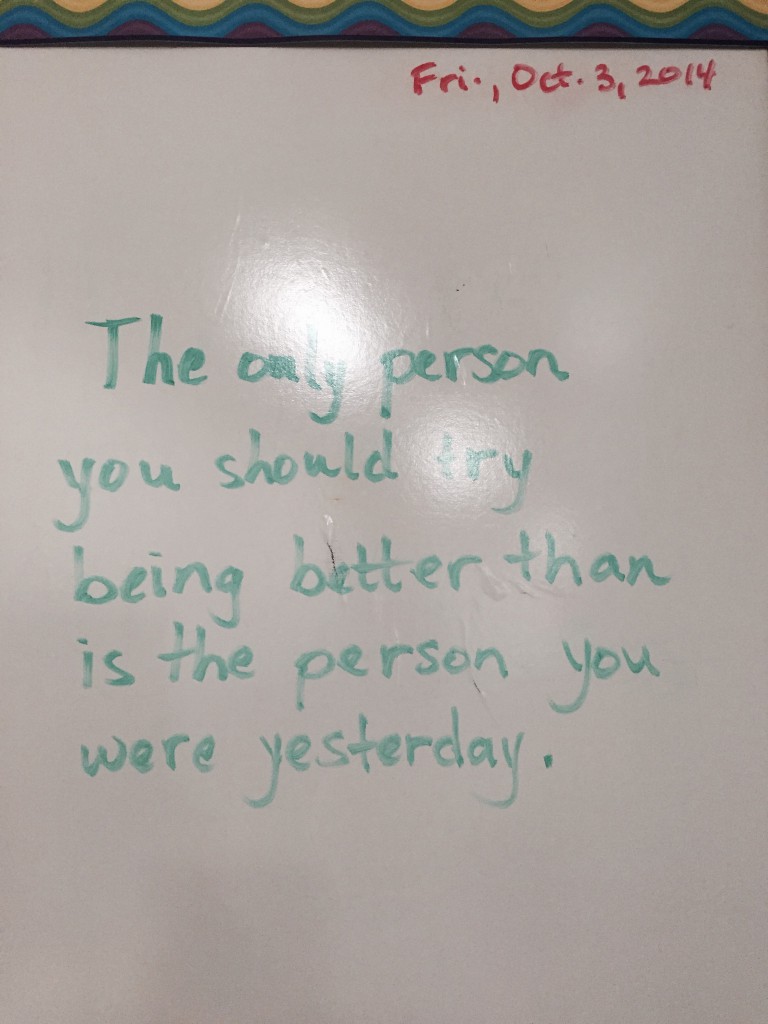 Fri., Oct. 3, 2014
The only person
you should try
being better than
is the person you
were yesterday.